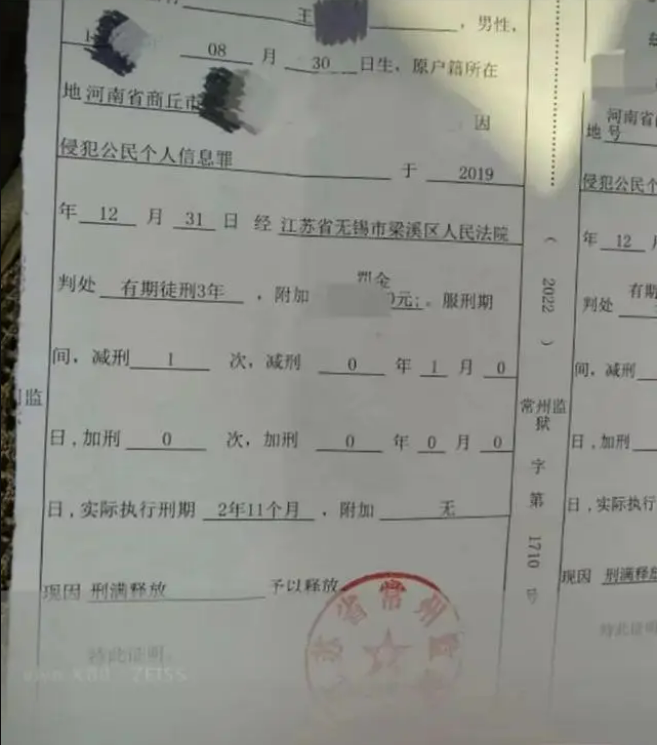 王
，男性，
08 月 30 日生，原户籍所在
地 河南省商丘市
因
侵犯公民个人信息罪 于 2019
年 12 月 31 日 经 江苏省无锡市梁溪区人民法院
判处 有期徒刑3年 ，附加 罚金 0元;。服刑期
间，减刑 1 次，减刑 0 年 1 月 0
日，加刑 0 次，加刑 0 年 0 月 0
日，实际执行刑期 2年11个月 ，附加 无
现因 刑满释放 予以释放
特此证明
省常州监
监
（2022）
常州监狱
字
第
1710
号
河南省
地 号
侵犯公民个
年 12 月
有期
判处
间，减刑
日，加刑
日，实际执行
现因 刑满释放
特此证明
ZEISS